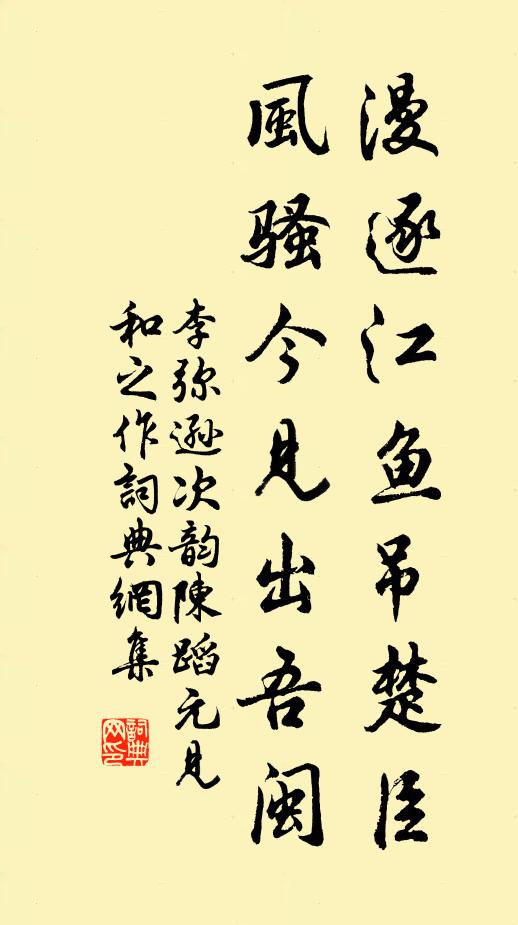 漫逐江鱼吊楚臣
風骚今見出吾闽
李弥遜次韵陳蹈元見
和之作詞典網集
詞典網印